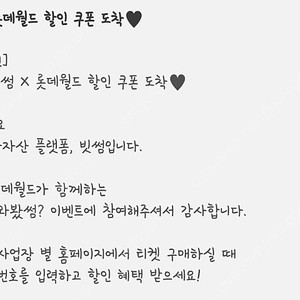 롯데월드 할인 쿠폰 도착♥
]
썸 X 롯데월드 할인 쿠폰 도착♥
요
자산 플랫폼, 빗썸입니다.
데월드가 함께하는
와봤썸? 이벤트에 참여해주셔서 감사합니다.
사업장 별 홈페이지에서 티켓 구매하실 때
번호를 입력하고 할인 혜택 받으세요!